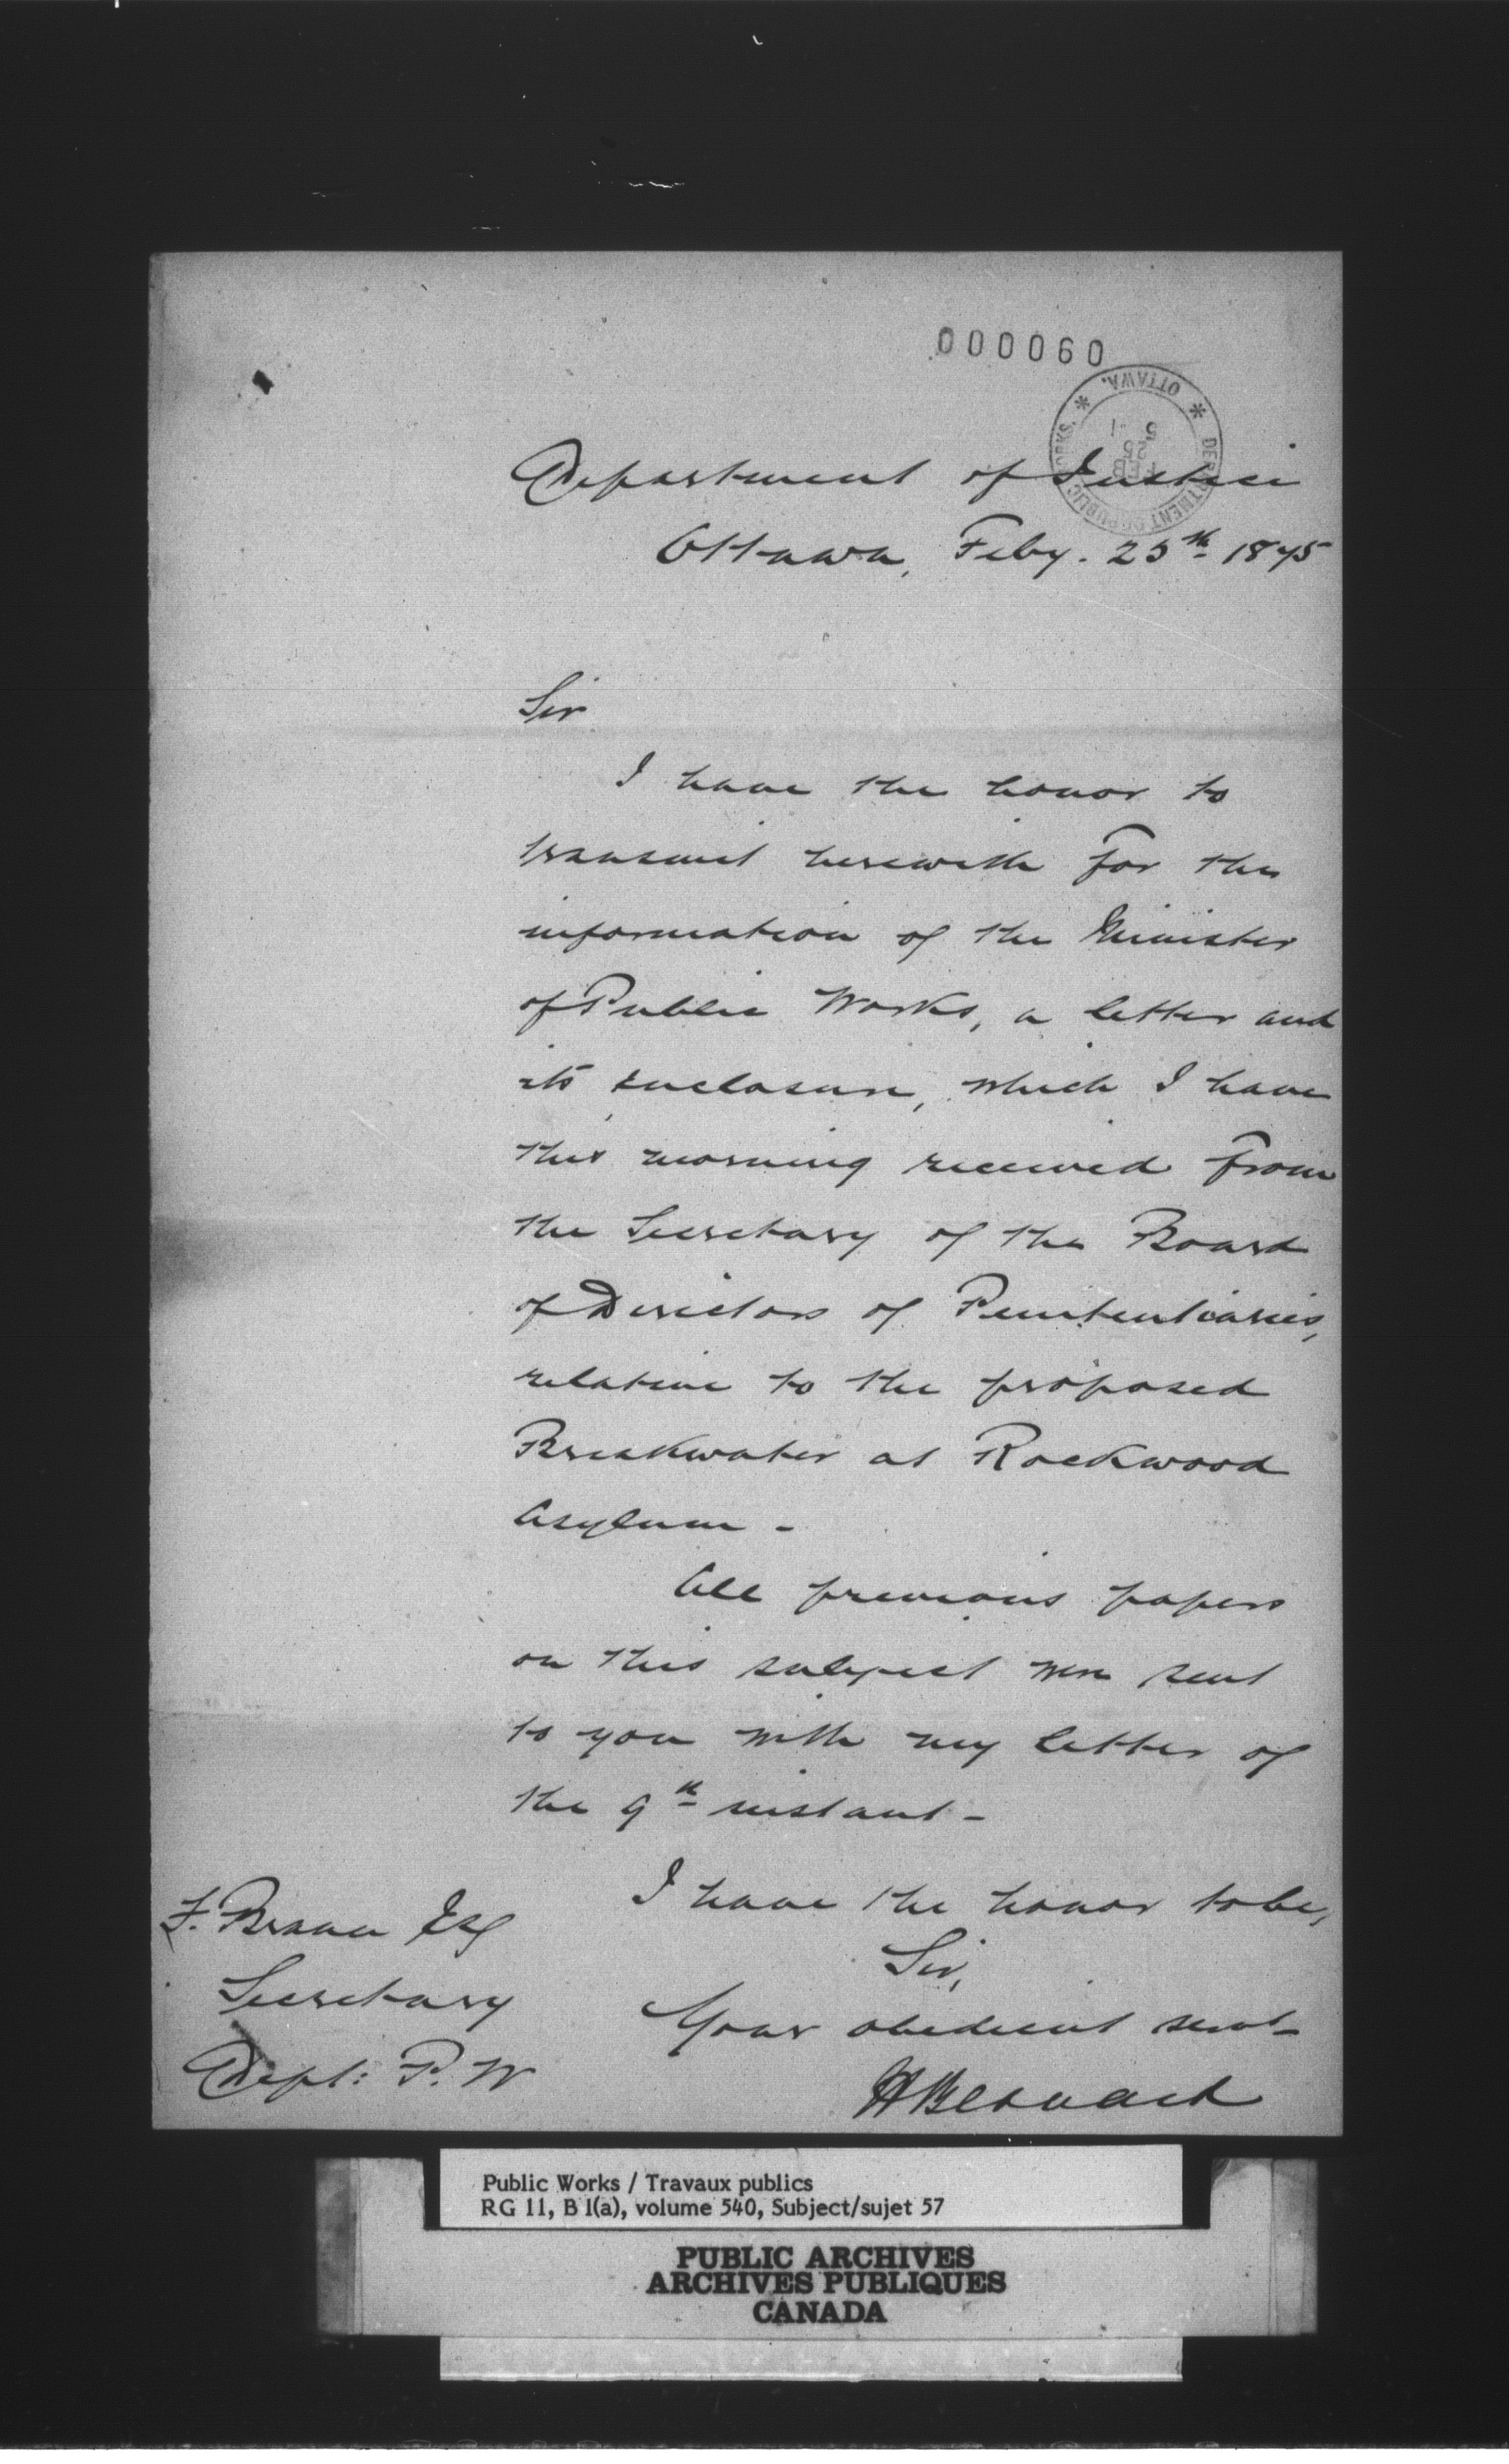 000060
DEPARTMENT OF PUBLIC WORKS. * OTTAWA. *
FEB
25
Department of Justice
Ottawa, Feby. 25th 1875
Sir
I have the honor to
transmit herewith for the
information of the Minister
of Public Works, a letter and
its enclosure, which I have
this morning received from
the Secretary of the Board
of Directors of Penitentiaries,
relative to the proposed
Breakwater at Rockwood
Asylum -
All previous papers
on this subject were sent
to you with my letter of
the 9th instant -
I have the honor to be,
Sir,
Your obedient servt
H Bernard
F. Braun Esq
Secretary
Dept: P. W
Public Works / Travaux publics
RG 11, B 1(a), volume 540, Subject/sujet 57
PUBLIC ARCHIVES
ARCHIVES PUBLIQUES
CANADA